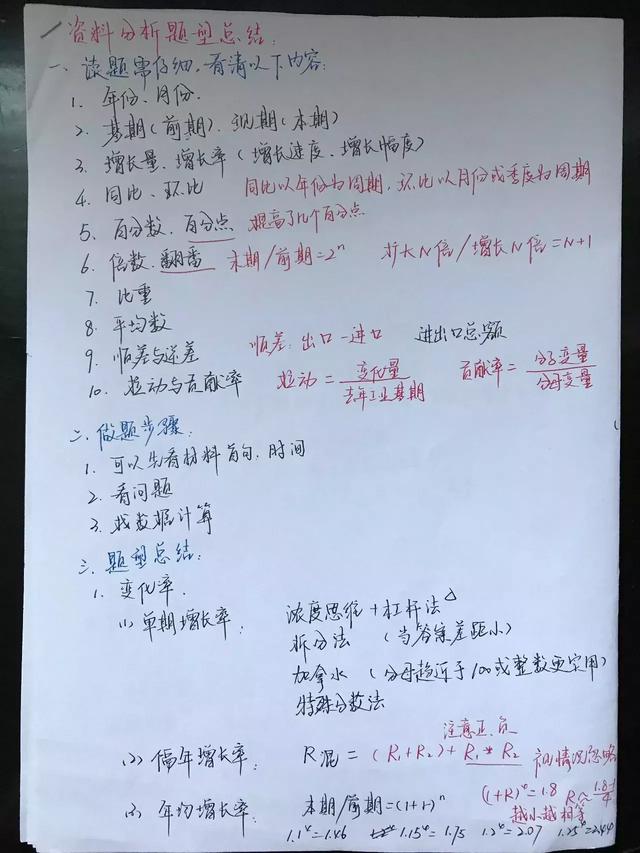 资料分析题型总结:
一、读题需仔细,看清以下内容:
1. 年份、月份.
2. 基期(前期)、现期(本期)
3. 增长量、增长率(增长速度、增长幅度)
4. 同比、环比 同比以年份为周期,环比以月份或季度为周期
5. 百分数、百分点 提高了几个百分点
6. 倍数、翻番 末期/前期=2ⁿ 扩大N倍/增长N倍=N+1
7. 比重
8. 平均数
9. 顺差与逆差 顺差:出口-进口 进出口总额
10. 拉动与贡献率 拉动=变化量/去年工业基期 贡献率=分子变量/分母变量
二、做题步骤:
1. 可以先看材料首句、时间
2. 看问题
3. 找数据计算
三、题型总结:
1. 变化率.
(1) 单期增长率: 浓度思维+杠杆法△
拆分法 (当答案差距小)
加拿水 (分母趋近于100或整数更实用)
特殊分数法
注意正、负
(2) 隔年增长率: R混=(R₁+R₂)+R₁*R₂ 情况忽略
(1+R)⁴=1.8 R≈1.8-1/4
越小越相等
(3) 年均增长率: 本期/前期=(1+1)ⁿ
1.1⁴=1.46 1.15⁴=1.75 1.2⁴=2.07 1.25⁴=2.44